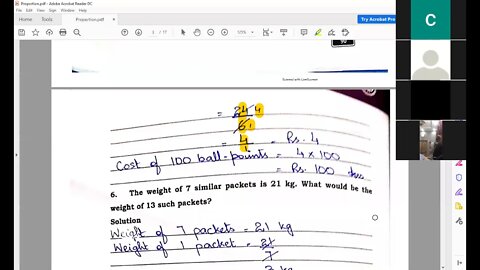 Proportion.pdf - Adobe Acrobat Reader DC
File Edit View Window Help
Home Tools Proportion.pdf
Try Acrobat Pro
C
= 24 4
6 1
= 4 = Rs. 4
1
Cost of 100 ball-points = 4 x 100
= Rs. 100
6. The weight of 7 similar packets is 21 kg. What would be the
weight of 13 such packets?
Solution
Weight of 7 packets = 21 kg
Weight of 1 packet = 21
7
3 kg